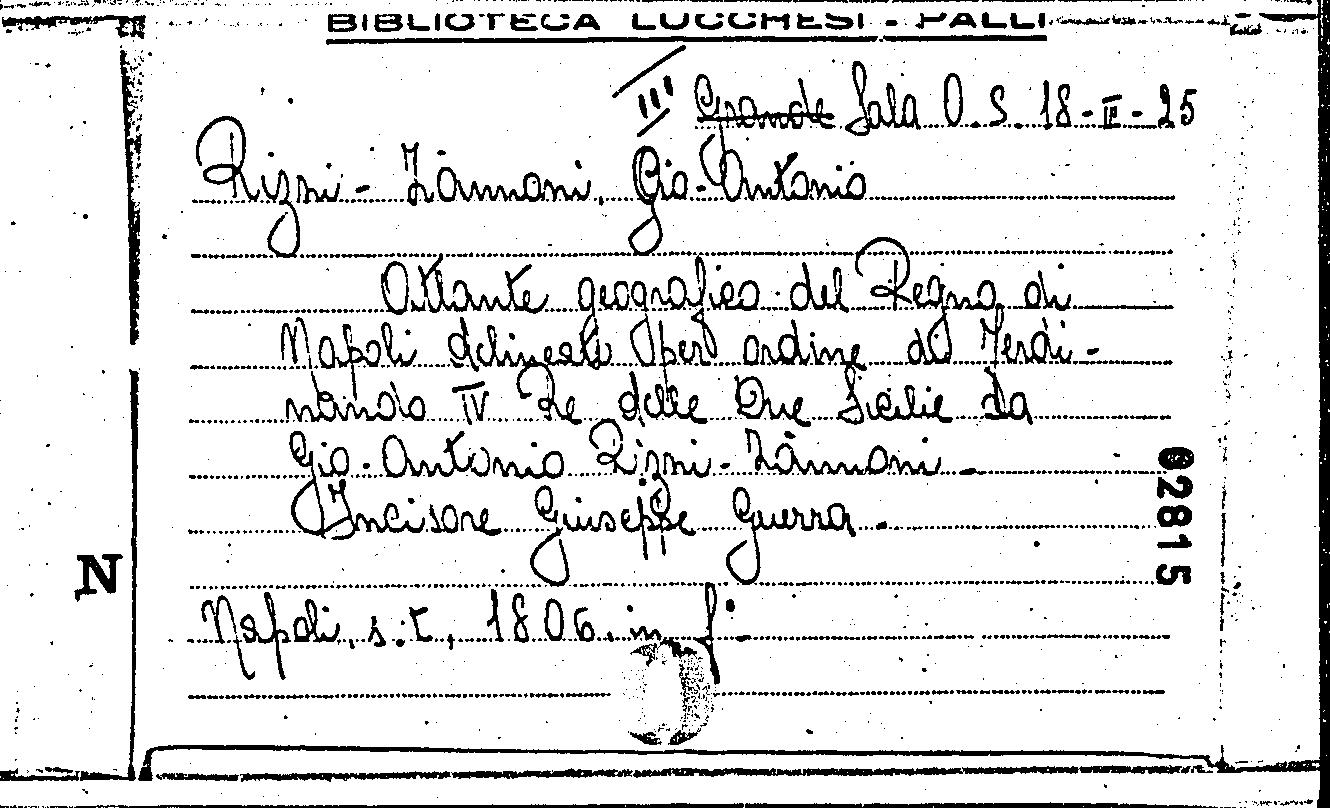 BIBLIOTECA LUCCHESI - PALLI
III Grande Sala O. S. 18-III-25
Rizni-Zannoni, Gio-Antonio
Atlante geografico del Regno di
Napoli delineato per ordine di Ferdi-
nando IV Re delle Due Sicilie da
Gio-Antonio Rizni-Zannoni.
Incisore Giuseppe Guerra.
Napoli, s.t, 1806. in f°.
02815
N